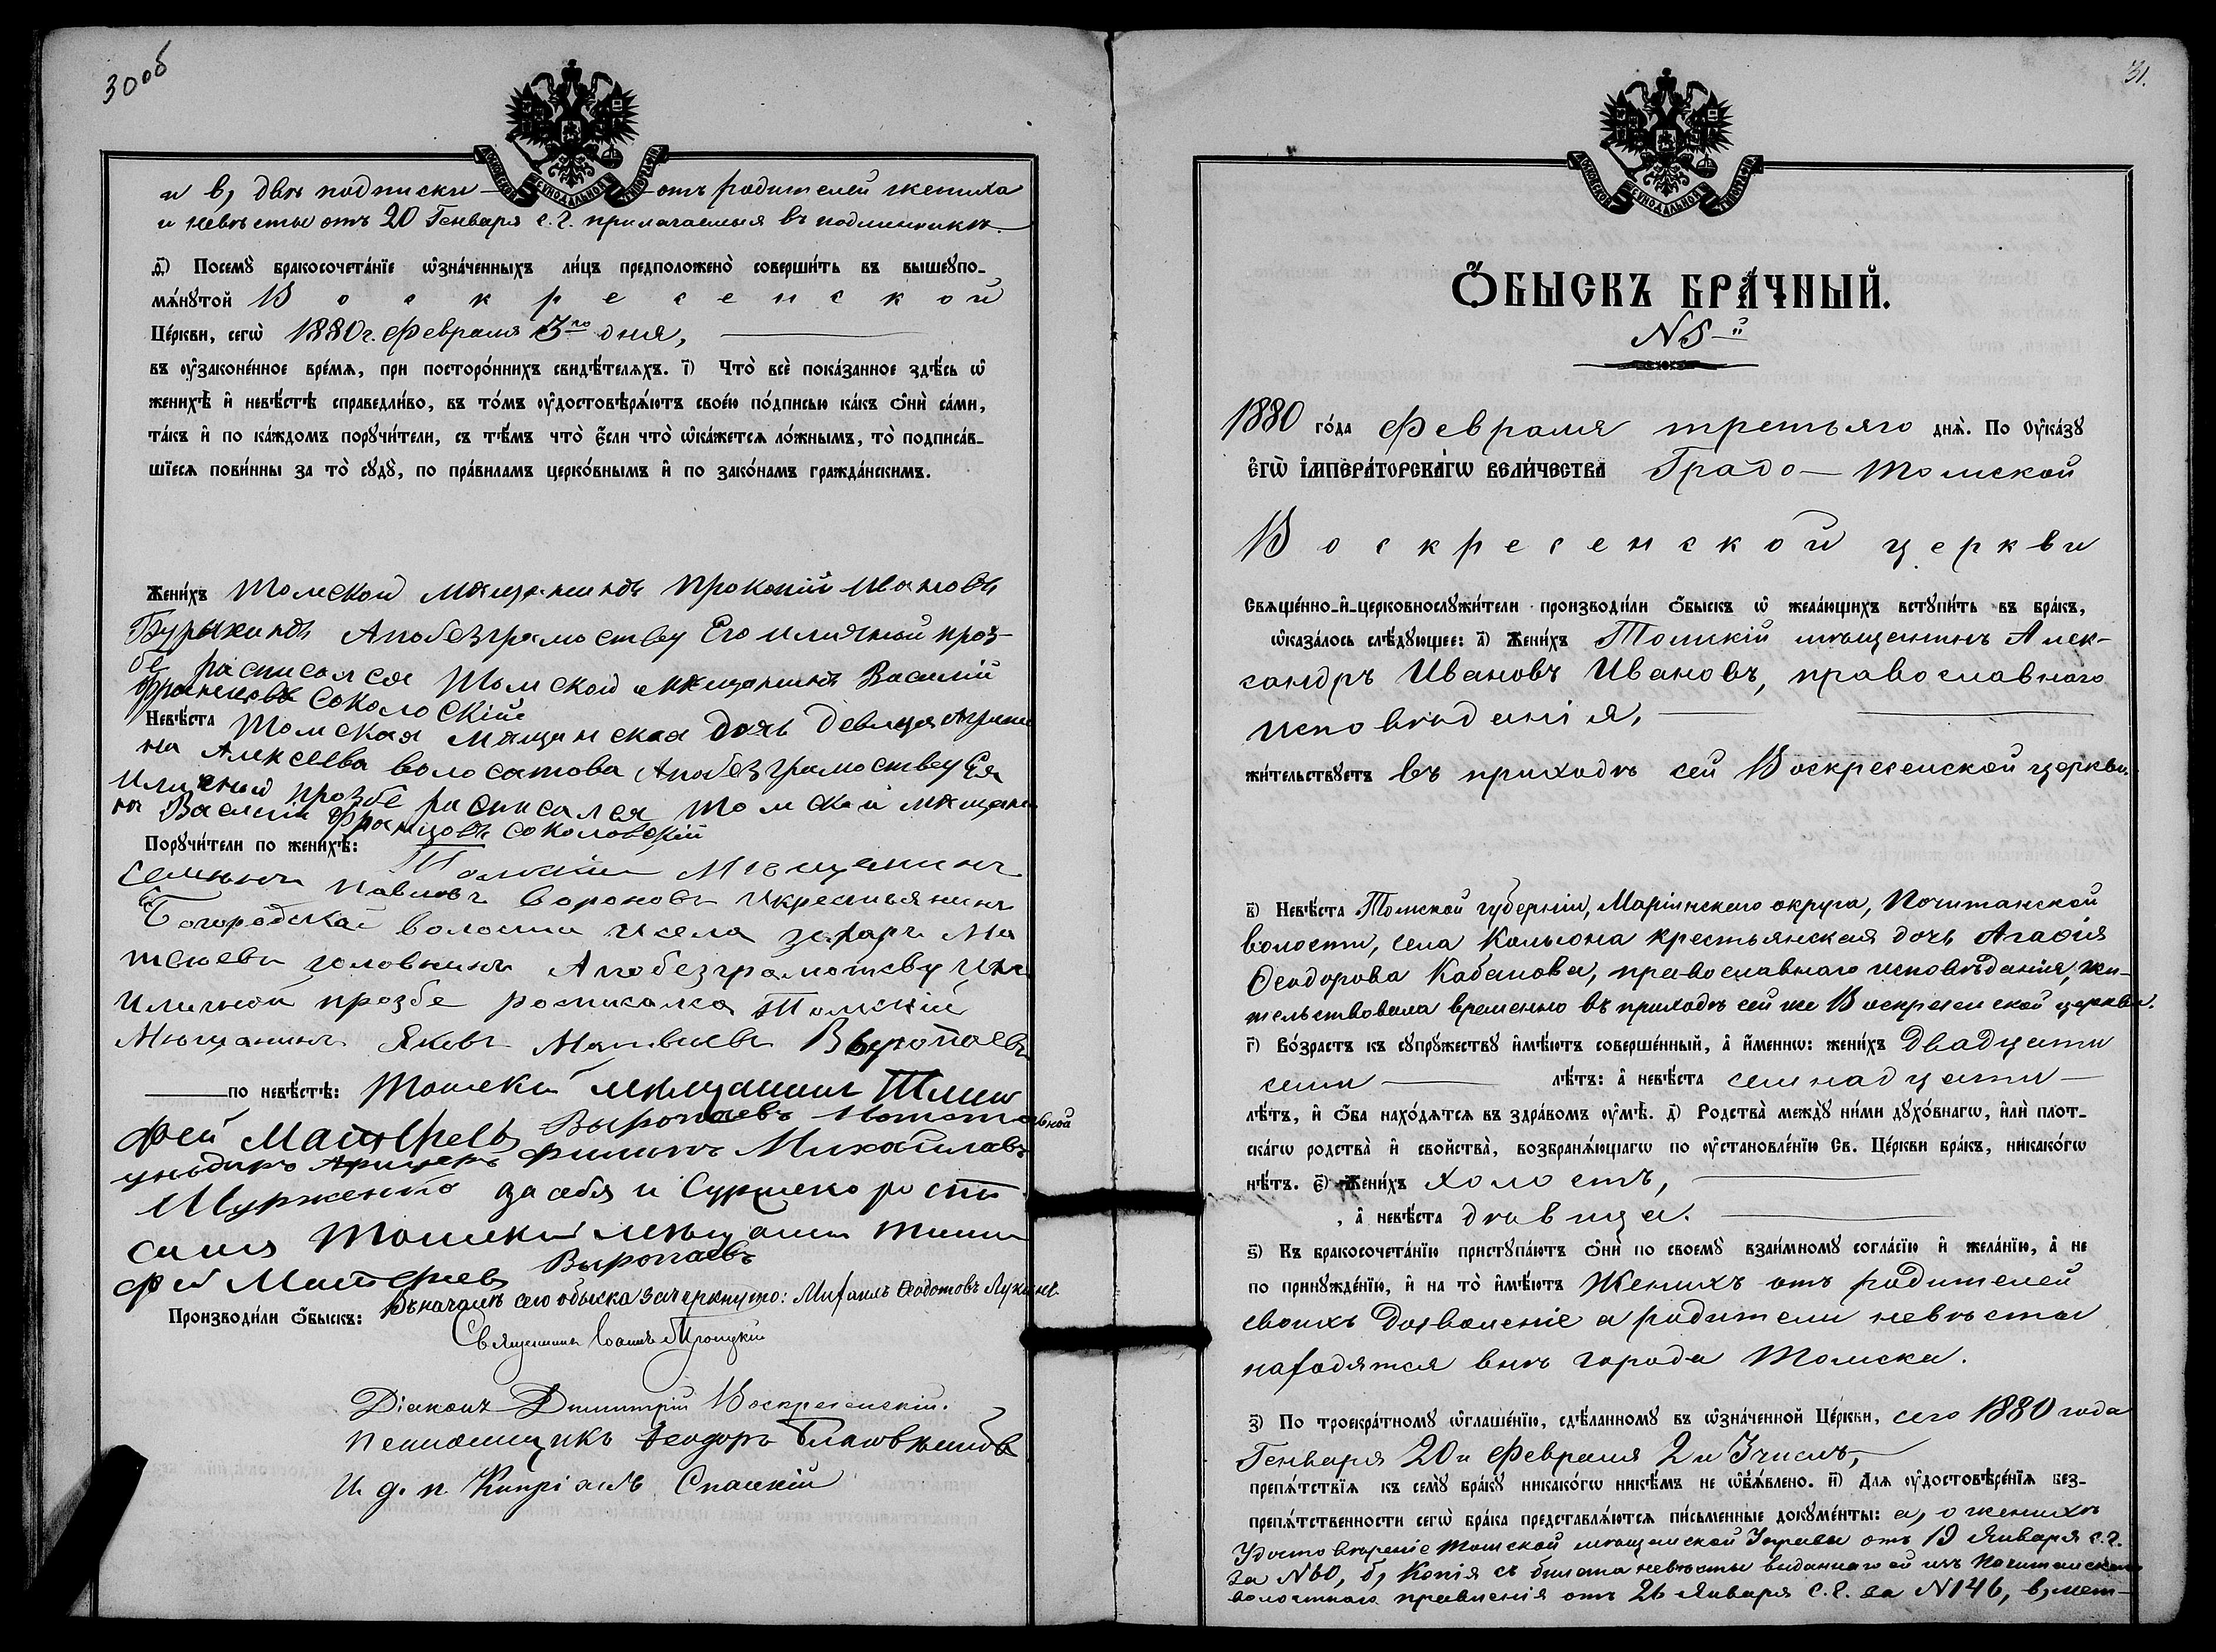 30об
и в, двѣ подписки — отъ родителей жениха
и невѣсты отъ 20 Генваря с. г. прилагаемыя въ подлинникѣ.
МОСКОВСКОЙ СѴНОДАЛЬНОЙ ТИПОГРАФІИ
ѳ҃) Посемꙋ̀ бракосочета́нїе ѡ҆зна́ченныхъ ли́цъ предположено̀ соверши́ть въ вышеꙋпо-
мѧ́нꙋтой Воскресенской
Це́ркви, сегѡ̀ 1880 г. Февраля 3го дня,
въ ᲂу҆зако́ненное вре́мѧ, при посторо́ннихъ свидѣ́телѧхъ. і҃) Что̀ всѐ пока́занное здѣ́сь ѡ҆
женихѣ̀ и҆ невѣ́стѣ справедли́во, въ то́мъ ᲂу҆достовѣрѧ́ютъ свое́ю по́дписью ка́къ ѻ҆нѝ са́ми,
та́къ и҆ по ка́ждомъ порꙋчи́тели, съ тѣ́мъ что̀ є҆́сли что̀ ѡ҆ка́жетсѧ ло́жнымъ, то̀ подписа́в-
шїесѧ пови́нны за то̀ сꙋдꙋ̀, по пра́виламъ церко́внымъ и҆ по зако́намъ гражда́нскимъ.
Жени́хъ Томской мѧщанинъ Прокопий Ивановъ
Бурыхинъ Апобезграмоству Его иличной проз-
бе расписался Томской мѧщанинъ Василий
Францовъ Соколоский
Невѣ́ста Томская мящанская дочь девица Агрипи
на Алексеева Волосатова Апобезграмоству Ея
иличной прозбе расписался Томской мящани
нъ Василий Францовъ Соколовский
Порꙋчи́тели по женихѣ̀: Томский Мѣщанинъ
Семѣнъ Павловъ Вороновъ Икрестьянинъ
Богородской волости Исела Захаръ Ма
твеевъ Головнинъ Апобезграмотсву Ихъ
иличной прозбе росписалса Томский
Мѣщанинъ Яковъ Матвиевъ Выропаевъ
по невѣ́стѣ: Томской мѣщанин Тимо
фей Матвѣевъ Выропаевъ Иотставной
уньдиръ Афицеръ Филипъ Михайлавъ
Мурженко за себя и
Томской мѣщанин Тимо
фей Матвѣевъ Выропаевъ
Производи́ли ѻ҆́быскъ: Въ началѣ сего обыска зачеркнуто: Михаилъ Ѳеодотовъ Лукинъ.
Священникъ Іоаннъ Троицкій
Діаконъ Димитрій Воскресенскій.
Псаломщикъ Ѳеодоръ
И. д. п. Кипріанъ Спасскій
31.
МОСКОВСКОЙ СѴНОДАЛЬНОЙ ТИПОГРАФІИ
Ѻ҆́БЫСКЪ БРА́ЧНЫЙ.
№ 5й
1880 го́да Февраля третьяго днѧ̀. По Оу҆ка́зꙋ
Є҆ГѠ̀ И҆МПЕРА́ТОРСКАГѠ ВЕЛИ́ЧЕСТВА Градо-Томской
Воскресенской церкви
Свѧще́нно-и҆-церковнослꙋжи́тели производи́ли ѻ҆́быскъ ѡ҆ жела́ющихъ встꙋпи́ть въ бра́къ,
ѡ҆каза́лось слѣ́дꙋющее: а҃) Жени́хъ Томскій мѣщанинъ Алек-
сандръ Ивановъ Ивановъ, православнаго
исповѣданія,
жи́тельствꙋетъ въ приходѣ сей Воскресенской церкви.
в҃) Невѣ́ста Томской губерніи, Маріинскаго округа, Почитанской
волости, села Кольюна крестьянская дочь Агаѳія
Ѳеодорова Кабанова, православнаго исповѣданія, жи-
тельствовала временно въ приходѣ сей же Воскресенской церкви.
г҃) Во́зрастъ къ сꙋпрꙋ́жествꙋ и҆мѣ́ютъ соверше́нный, а҆ и҆́меннѡ: жени́хъ двадцати
семи лѣ́тъ: а҆ невѣ́ста семнадцати
лѣ́тъ, и҆ ѻ҆́ба нахо́дѧтсѧ въ здра́вомъ ᲂу҆мѣ̀. д҃) Родства̀ междꙋ̀ ни́ми дꙋхо́внагѡ, и҆лѝ пло́т-
скагѡ родства̀ и҆ свойства̀, возбранѧ́ющагѡ по ᲂу҆становле́нїю Св. Це́ркви бра́къ, никако́гѡ
нѣ́тъ. є҃) Жени́хъ холостъ,
, а҆ невѣ́ста дѣвица.
ѕ҃) Къ бракосочета́нїю пристꙋпа́ютъ ѻ҆нѝ по своемꙋ̀ взаи́мномꙋ согла́сїю и҆ жела́нїю, а҆ не
по принꙋжде́нїю, и҆ на то̀ и҆мѣ́ютъ Женихъ отъ родителей
своихъ дозволеніе а родители невѣсты
находятся внѣ города Томска.
з҃) По троекра́тномꙋ ѡ҆глаше́нїю, сдѣ́ланномꙋ въ ѡ҆зна́ченной Це́ркви, сего 1880 года
Генваря 20 и Февраля 2 и 3 числъ,
препѧ́тствїѧ къ семꙋ̀ бра́кꙋ никако́гѡ никѣ́мъ не ѡ҆б̾ѧ́влено. и҃) Длѧ ᲂу҆достовѣре́нїѧ без-
препѧ́тственности сегѡ̀ бра́ка представлѧ́ютсѧ пи́сьменные докꙋме́нты: а, о женихѣ
Удостовѣреніе Томской мѣщанской Управы отъ 19 Января с. г.
за № 60, б, Копія съ билета невѣсты виданнаго ей изъ Почитанскаго
волостнаго правленія отъ 26 Января с. г. за № 146, в, мет-